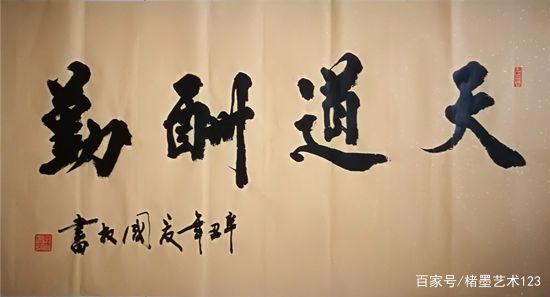 天道酬勤
辛丑年爱国书
百家号/楮墨艺术123